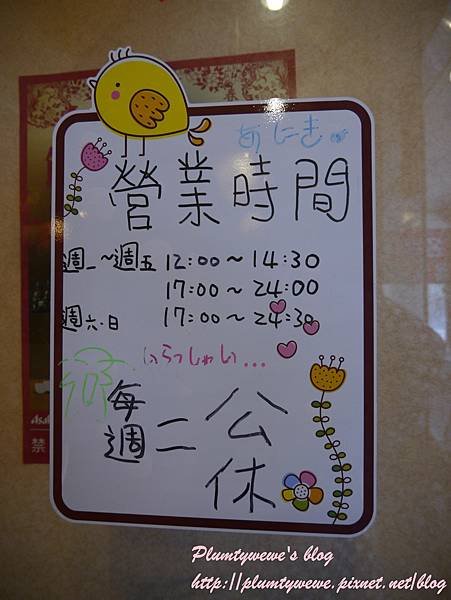 あにき
營業時間
週一~週五 12:00~14:30
17:00~24:00
週六日 17:00~24:30
いらっしゃい...
每週二公休
禁
Plumtywewe's blog
http://plumtywewe.pixnet.net/blog